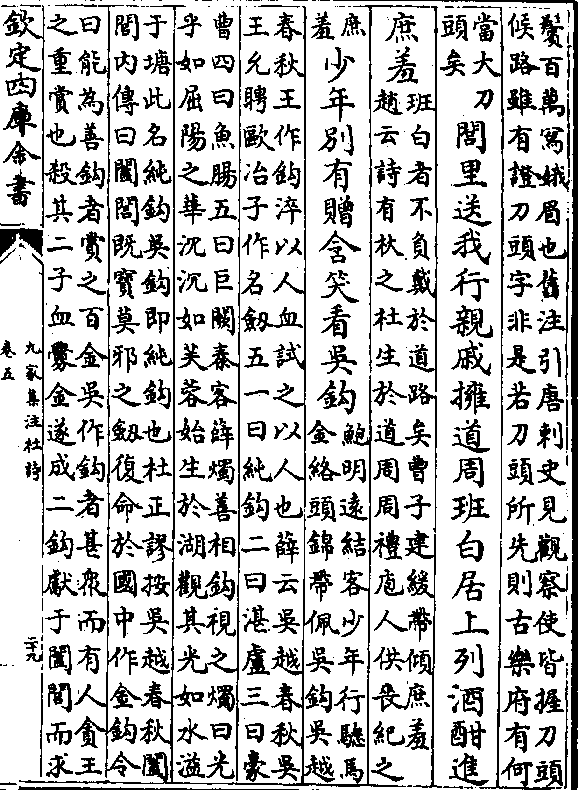 鬢百萬寫娥眉也舊注引唐刺史見觀察使皆握刀頭
候路雖有證刀頭字非是若刀頭所先則古樂府有何
當大刀
頭矣
閭里送我行親戚擁道周班白居上列酒酣進
庶羞
班白者不負戴於道路矣曹子建緩帶傾庶羞
趙云詩有杕之杜生於道周周禮庖人供喪紀之
庶
羞
少年別有贈含笑看吳鈎
鮑明遠結客少年行驄馬
金絡頭錦帶佩吳鈎吳越
春秋王作鈎淬以人血試之以人也薛云吳越春秋吳
王允聘歐冶子作名劔五一曰純鈎二曰湛盧三曰豪
曹四曰魚腸五曰巨闕秦客薛燭善相鈎視之燭曰光
乎如屈陽之華沉沉如芙蓉始生於湖觀其光如水溢
于塘此名純鈎吳鈎即純鈎也杜正謬按吳越春秋闔
閭内傳曰闔閭既寶莫邪之劔復命於國中作金鈎令
曰能為善鈎者賞之百金吳作鈎者甚衆而有人貪王
之重賞也殺其二子血釁金遂成二鈎獻于闔閭而求
欽定四庫全書
九家集注杜詩
卷五
二十九